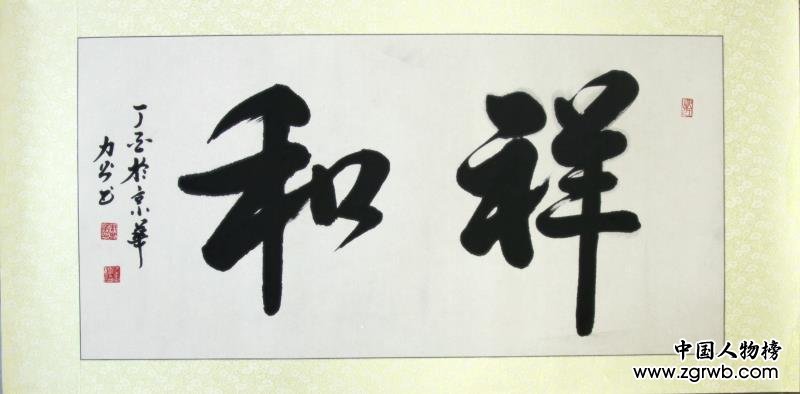 祥和
丁亥於京華
力公书
中国人物榜
www.zgrwb.com